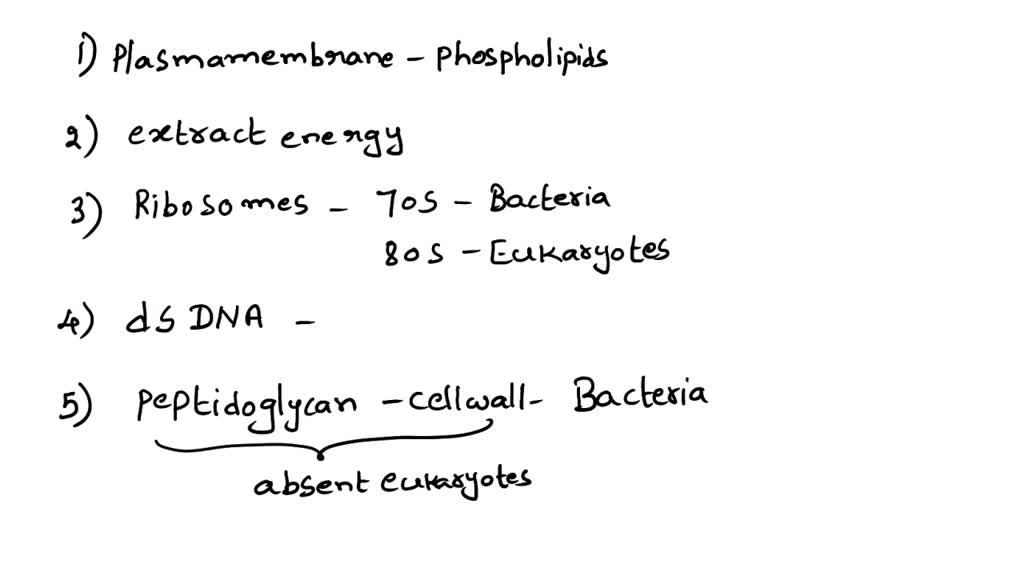 1) Plasmamembrane - Phospholipids
2) extract energy
3) Ribosomes - 70S - Bacteria
80S - Eukaryotes
4) dS DNA -
5) Peptidoglycan - cellwall - Bacteria
absent eukaryotes